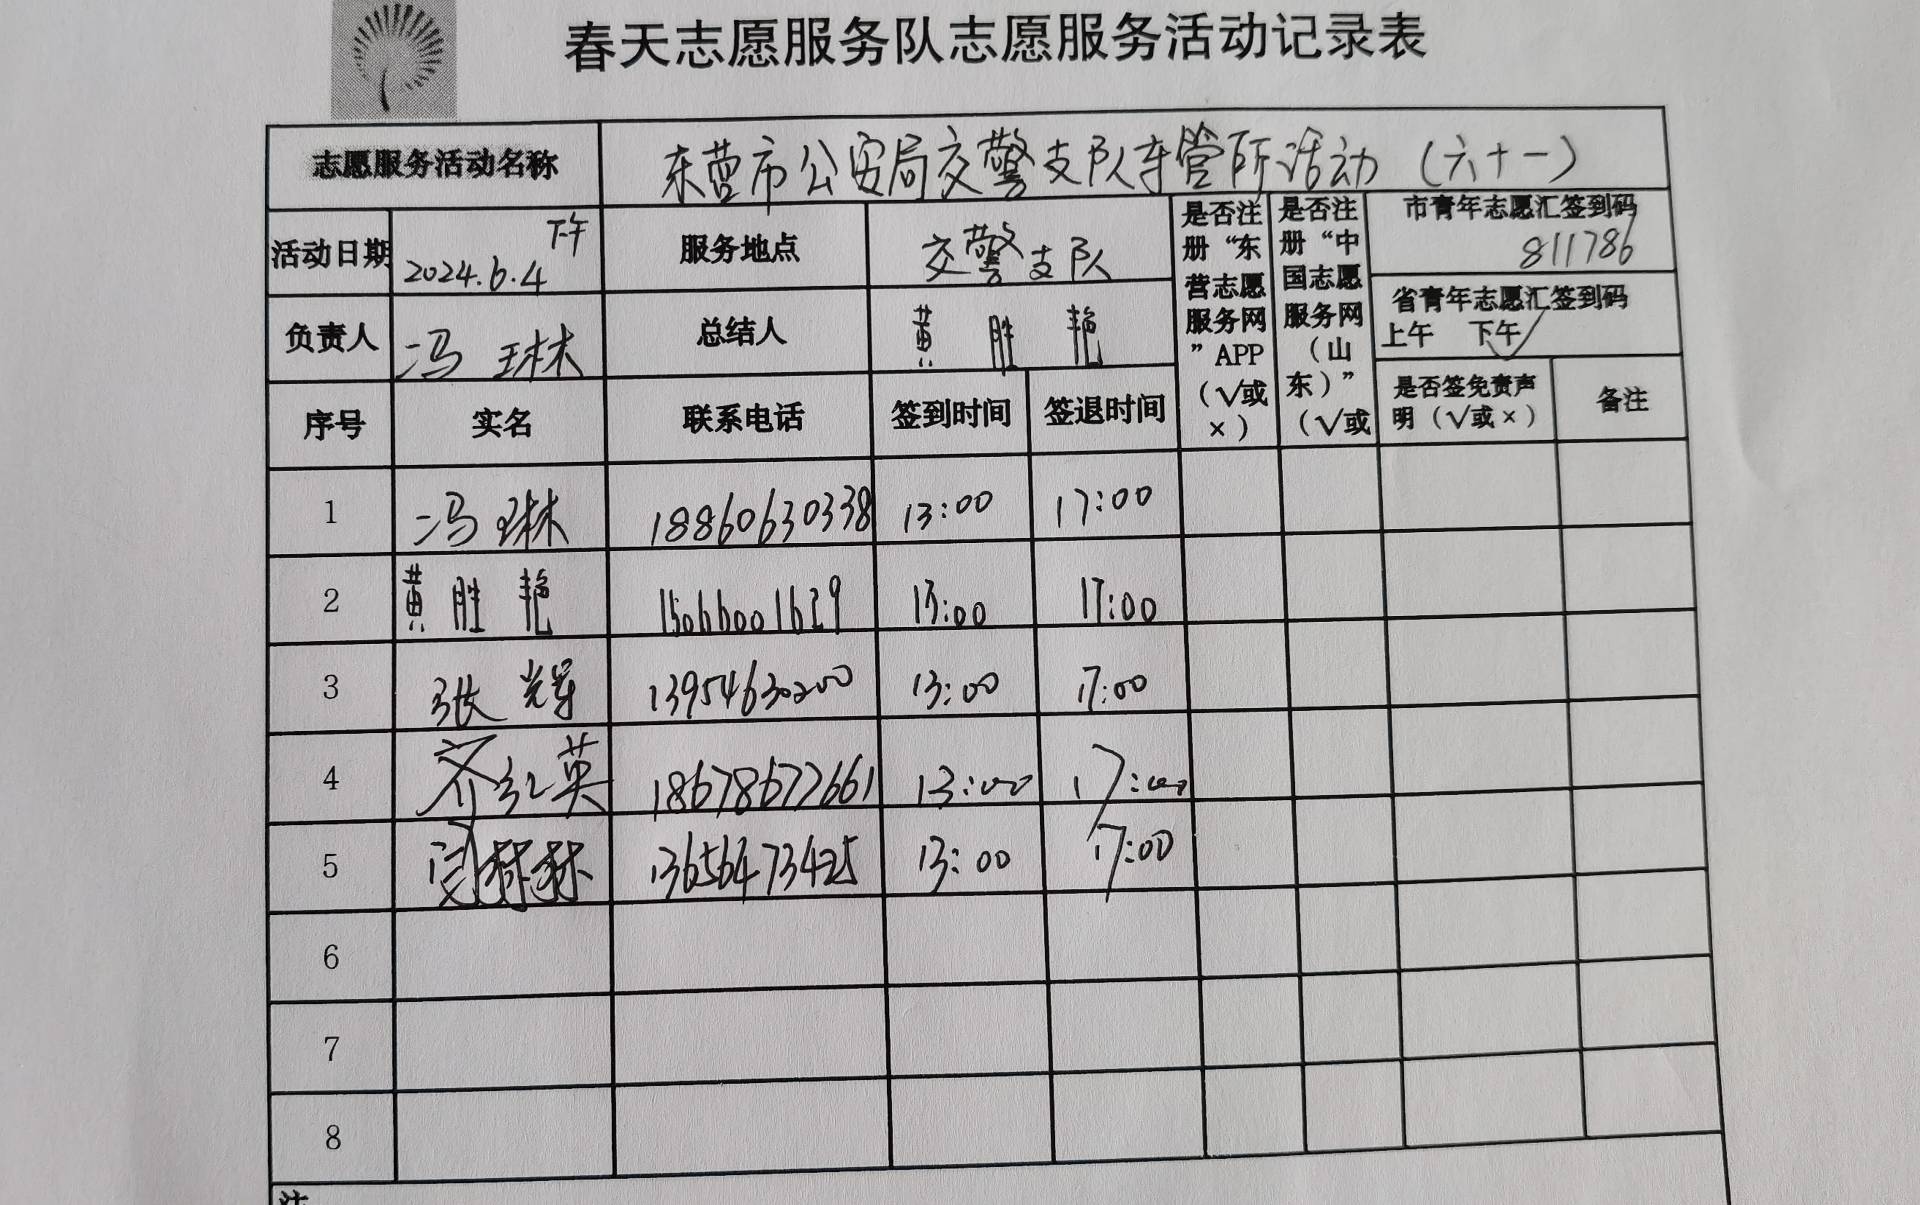 春天志愿服务队志愿服务活动记录表
志愿服务活动名称 东营市公安局交警支队车管所活动（六十一）
活动日期 2024.6.4 下午 服务地点 交警支队
是否注册“东营志愿服务网”APP（√或×）
是否注册“中国志愿服务网（山东）”（√或
市青年志愿汇签到码
811786
负责人 冯琳 总结人 黄胜艳
省青年志愿汇签到码
上午 下午√
序号 实名 联系电话 签到时间 签退时间 是否签免责声明（√或×） 备注
1 冯琳 18860630338 13:00 17:00
2 黄胜艳 15066001629 13:00 17:00
3 张辉 13954630200 13:00 17:00
4 齐红英 18678677661 13:00 17:00
5 闫林林 13656473425 13:00 17:00
6
7
8
注